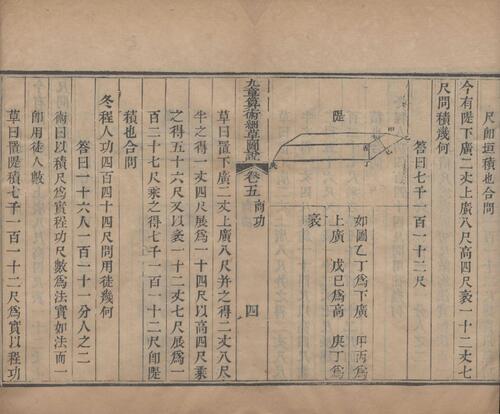 尺卽垣積合問
今有隄下廣二丈上廣八尺高四尺袤一十二丈七
尺問積幾何
答曰七千一百一十二尺
隄
如圖乙丁爲下廣 甲丙爲
上廣 戊己爲高 庚丁爲
袤
九章算術細草圖說 卷五 商功 四
草曰置下廣二丈上廣八尺并之得二丈八尺
半之得一丈四尺展爲一十四尺以高四尺乘
之得五十六尺又以袤一十二丈七尺展爲一
百二十七尺乘之得七千一百一十二尺卽隄
積也合問
冬程人功四百四十四尺問用徒幾何
答曰一十六人一百一十一分人之二
術曰以積尺爲實程功尺數爲法實如法而一
卽用徒人數
草曰置隄積七千一百一十二尺爲實以程功